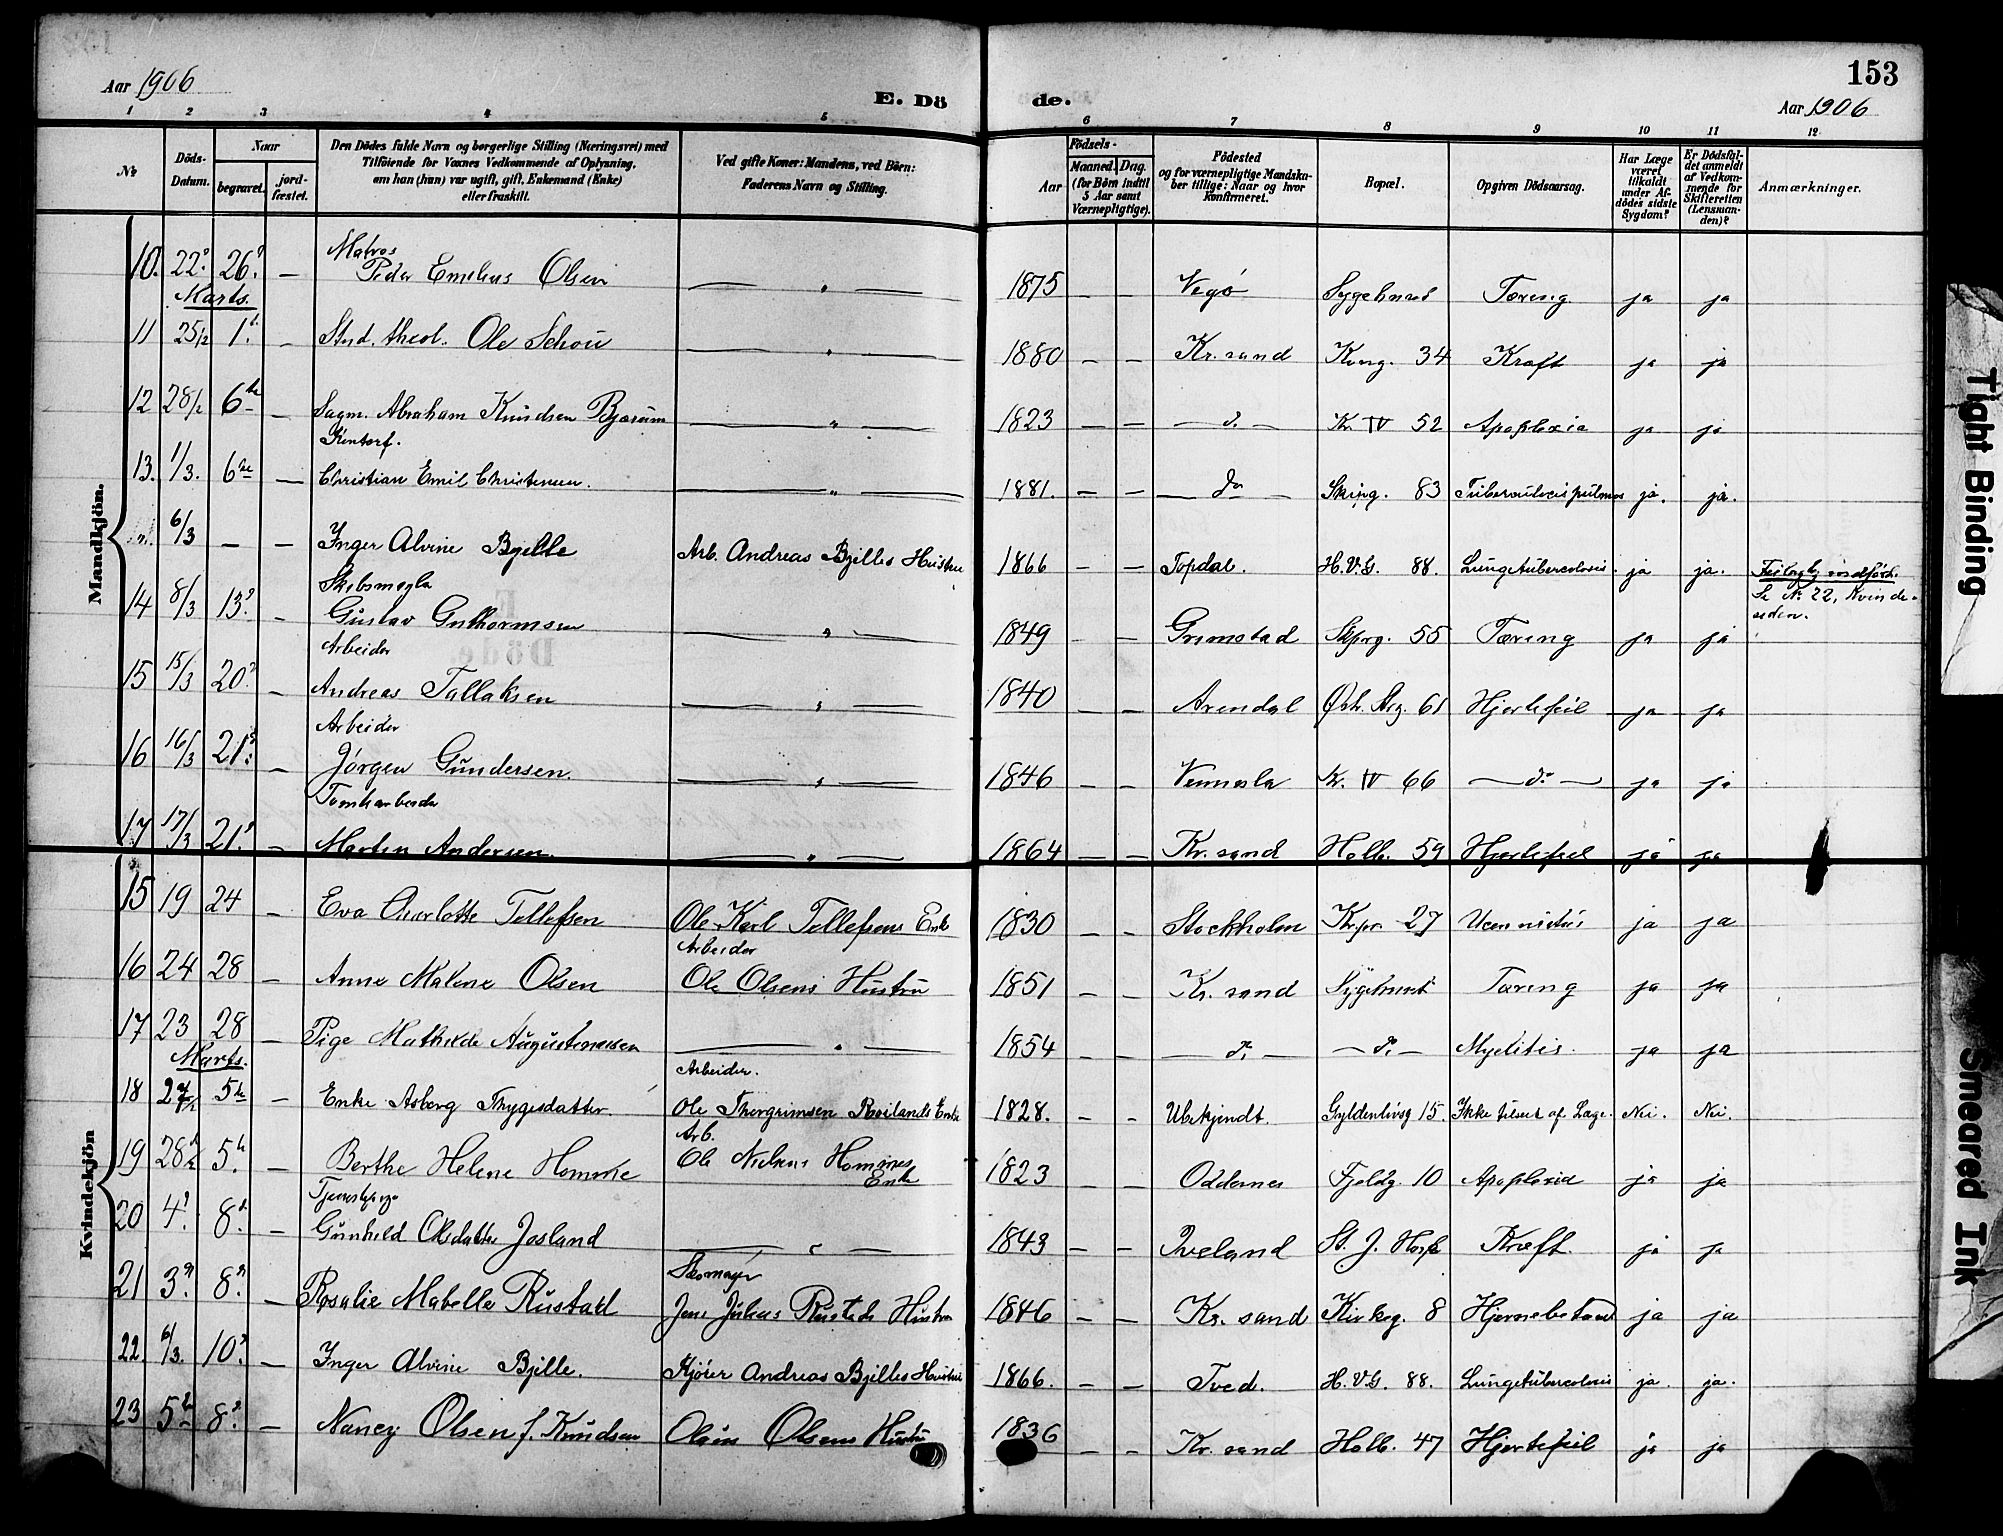 Aar 1906
E. Dö de.
153
Aar 1906
1 2 3 4 5 6 7 8 9 10 11 12
№
Döds-Datum.
Naar
begravet.
jord-fæstet.
Den Dödes fulde Navn og borgerlige Stilling (Næringsvei) med
Tilföiende for Voxnes Vedkommende af Oplysning,
om han (hun) var ugift, gift, Enkemand (Enke)
eller fraskilt.
Ved gifte Koner: Mandens, ved Börn:
Faderens Navn og Stilling.
Födsels-
Aar
Maaned. Dag.
(for Börn indtil
5 Aar samt
Værnepligtige).
Födested
og for værnepligtige Mandska-
ber tillige: Naar og hvor
konfirmeret.
Bopæl.
Opgiven Dödsaarsag.
Har Læge
været
tilkaldt
under Af-
dödes sidste
Sygdom?
Er Dödsfal-
det anmeldt
af Vedkom-
mende for
Skifteretten
(Lensman-
den)?
Anmærkninger.
Mandkjön.
Matros
10. 22. 26. — Peder Emelius Olsen — „ — 1875 — — Vegö Sygehuset Tæring ja ja
Marts.
11 25/2 1. — Stud. theol. Ole Schou — „ — 1880 — — Kr.sand Kong. 34 Kræft ja ja
12 28/2 6te — Sagm. Abraham Knudsen Bjorum — „ — 1823 — — — do — Kr. IV 52 Apoplexie ja ja
Kontorf.
13. 1/3. 6te — Christian Emil Christensen. — „ — 1881. — — — do — Skipg. 83 Tuberculosis pulmon ja. ja.
6/3 — — Inger Alvine Bjelle Arb. Andreas Bjelles Hustru 1866 — — Topdal. H.V.G. 88. Lungetuberculosis. ja ja. Feilagtig indført.
Se No 22, Kvinde-
siden.
Skibsmægler
14 8/3 13. — Gustav Guthormsen — „ — 1849 — Grimstad Skprg. 55 Tæring ja ja
Arbeider
15 15/3 20. — Andreas Tallaksen — „ — 1840 — — Arendal Østr. Strg. 61 Hjertefeil ja ja
Arbeider
16 16/3 21. — Jörgen Gundersen. — „ — 1846 — — Vennesla Kr. IV 66 — do — ja ja
Tomtearbeider
17 17/3 21. — Martin Andersen. — „ — 1864 — — Kr.sand Holb. 59 Hjertefeil ja ja
Kvindekjön
15 19 24 — Eva Charlotte Tellefsen Ole Karl Tellefsens Enke 1830 — — Stockholm Krpr. 27 ja ja
Arbeider
16 24 28 — Anne Malene Olsen Ole Olsens Hustru 1851 — — Kr.sand Sygehuset Tæring ja ja
17 23 28 — Pige Mathilde Augustinussen — „ — 1854 — — — do — — do — Myelitis. ja ja
Marts.
Arbeider.
18 27/2 5te — Enke Asborg Thygesdatter Ole Thorgrimsen Roilands Enke 1828. — — Ubekjendt. Gyldenlövsg 15. Ikke tilseet af Læge. Nei. Nei.
Arb.
19 28/2 5. — Berthe Helene Homme Ole Nielsens Hommes
Enke 1823 — — Oddernes Fjeldg. 10 Apoplexie ja ja
Tjenestepige
20 4. 8. — Gunhild Olsdatter Josland — „ — 1843 — — Iveland St. J. Hosp. Kræft. ja ja
Skomager
21 3. 8. — Rosalie Mabelle Rustad Jens Julius Rustads Hustru 1846 — — Kr. sand Kirkeg. 8 Hjernebetænd ja ja
22. 6/3. 10. — Inger Alvine Bjelle. Kjörer Andreas Bjelles Hustru 1866. — — Tved. H.V.G. 88. Lungetuberculosis ja. ja.
23 5te 8. — Nancy Olsen f. Knudsen Olsens Hustru 1836 — — Kr.sand Holb. 47 Hjertefeil ja ja
Tight Binding
Smeared Ink